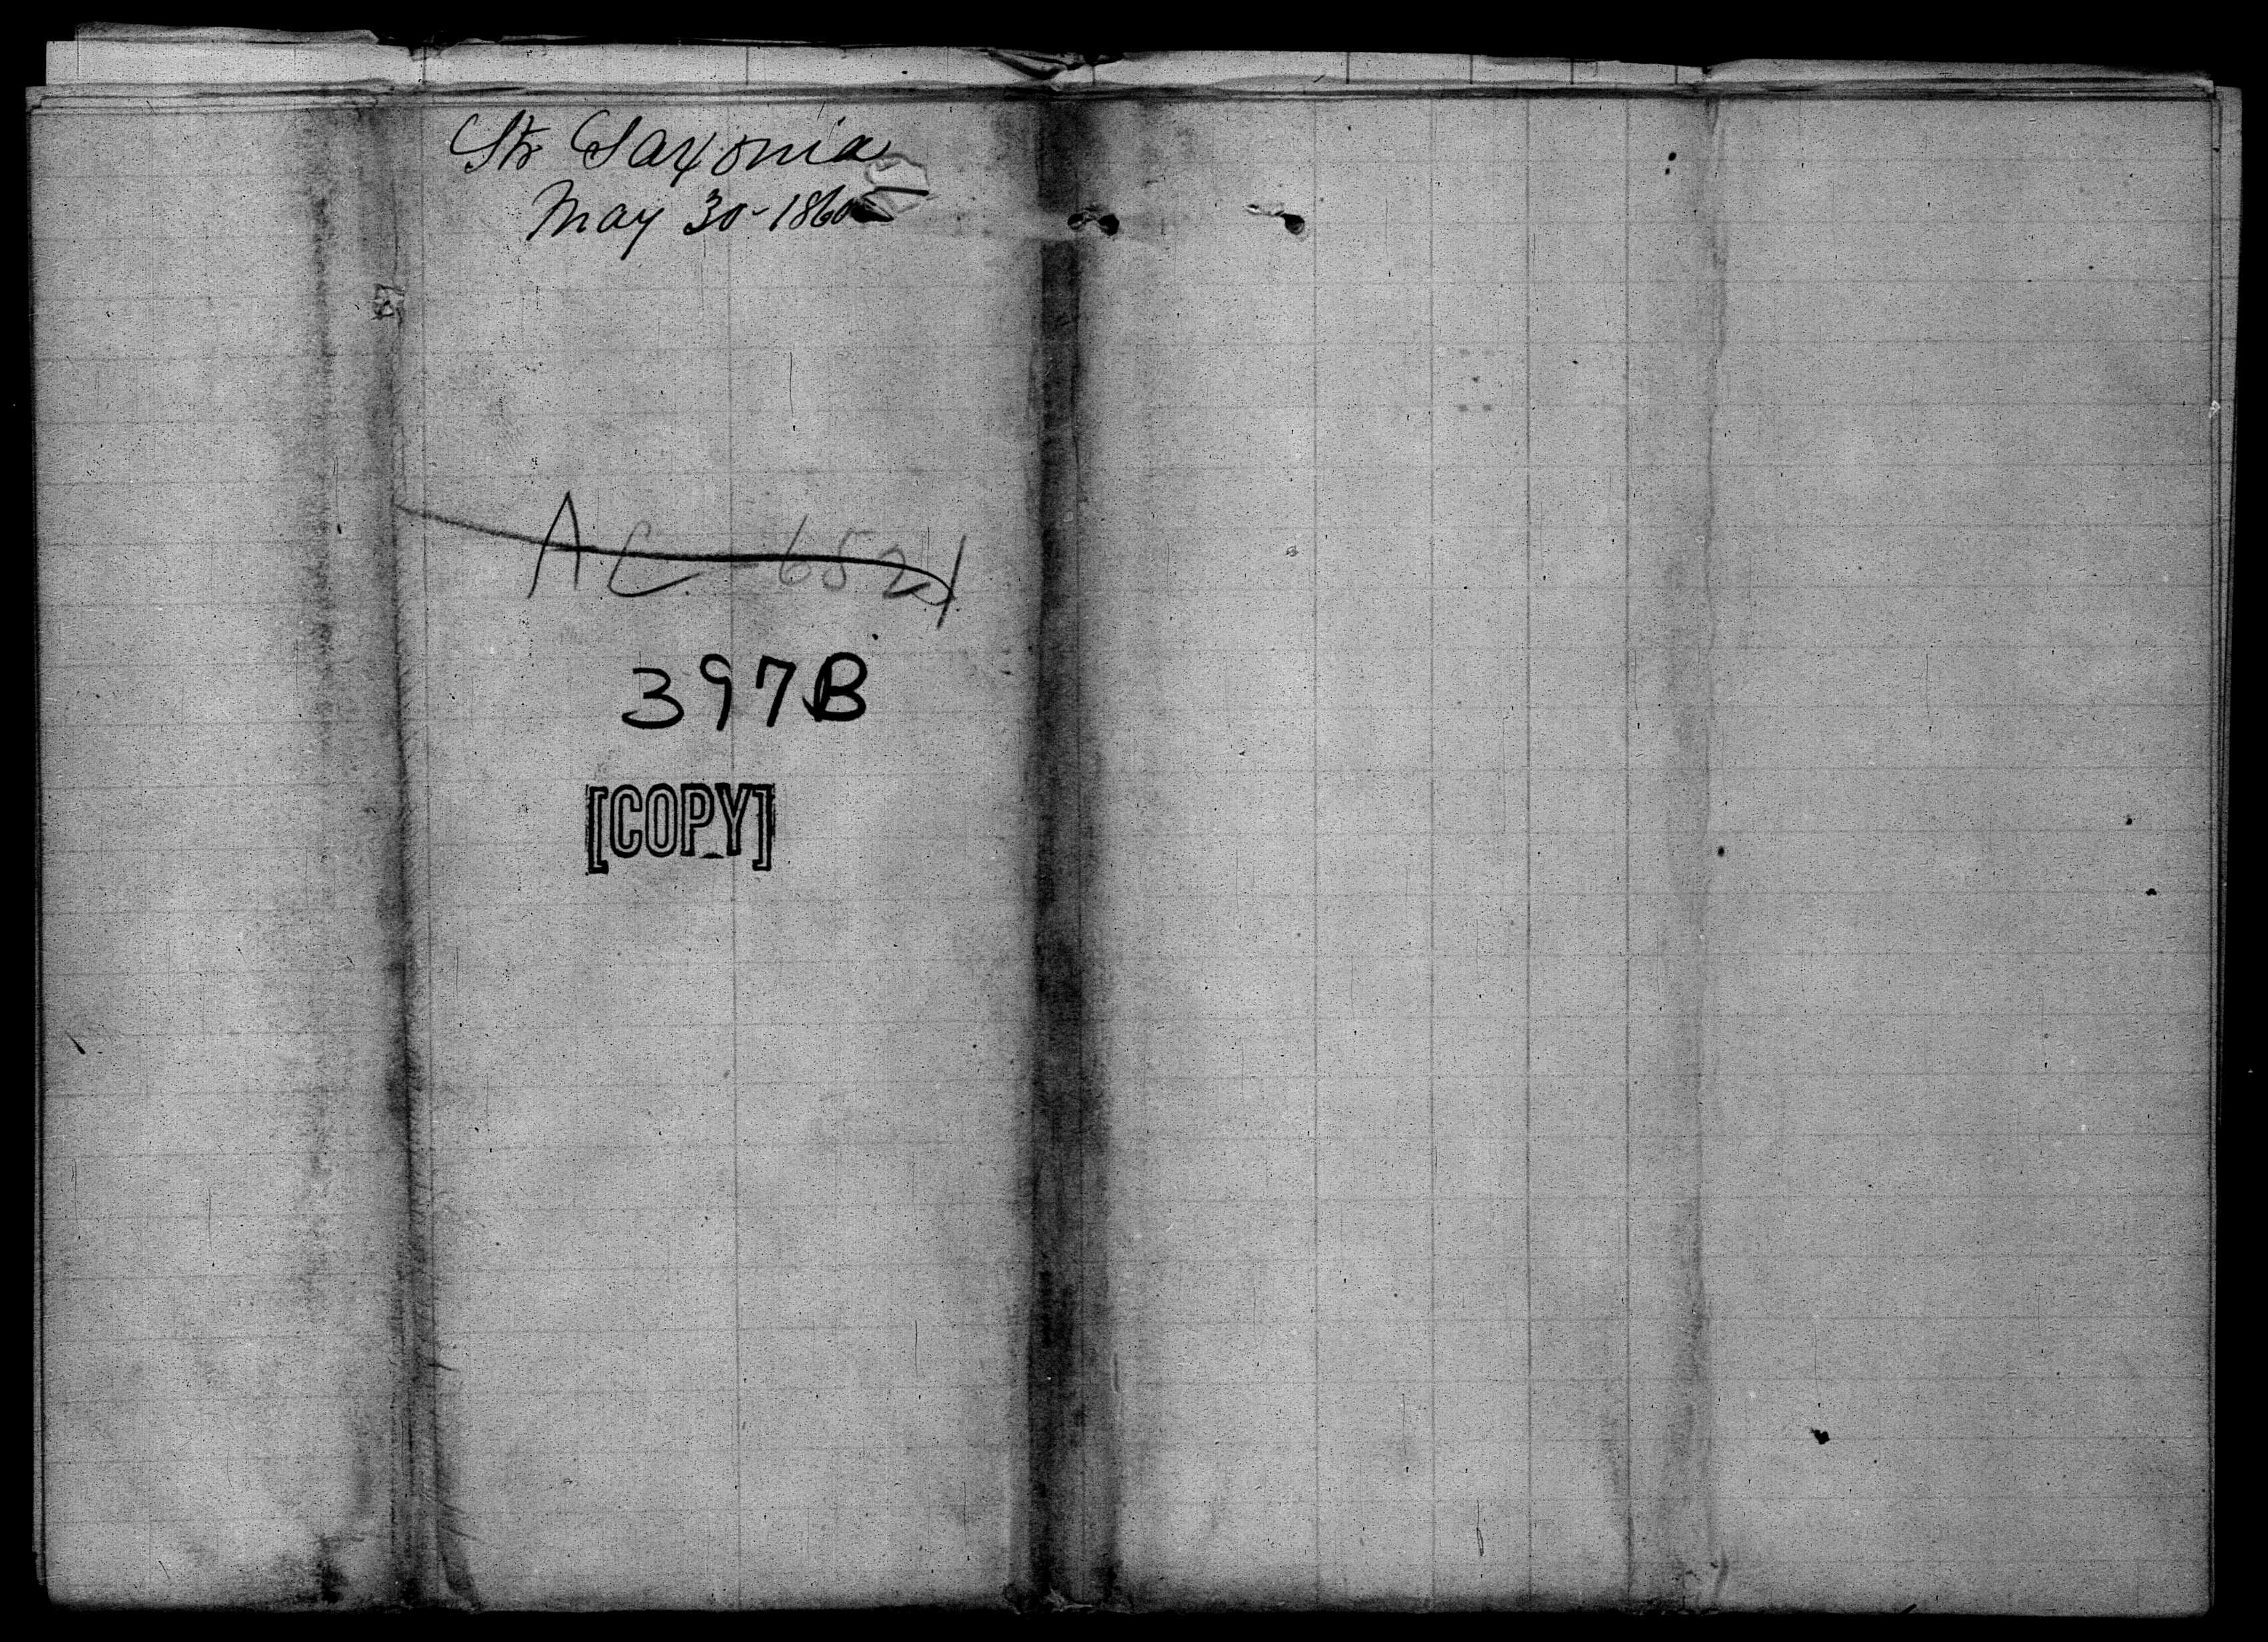 Str Saxonia
May 30-1860
A.C. 6521
397B
[COPY]